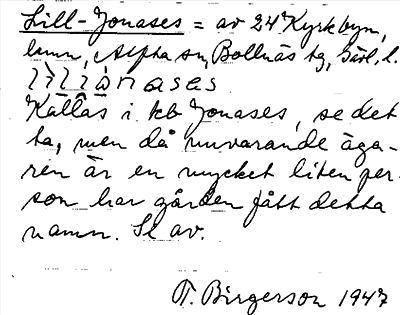 Lill-Jonases = av 24 Kyrkbyn,
hmn, Alpha sn, Bollnäs tg, Gävl. l.
Kallas i kb Jonases, se det-
ta, men då nuvarande äga-
ren är en mycket liten per-
son har gården fått detta
namn. Se av.
T. Birgerson 1947